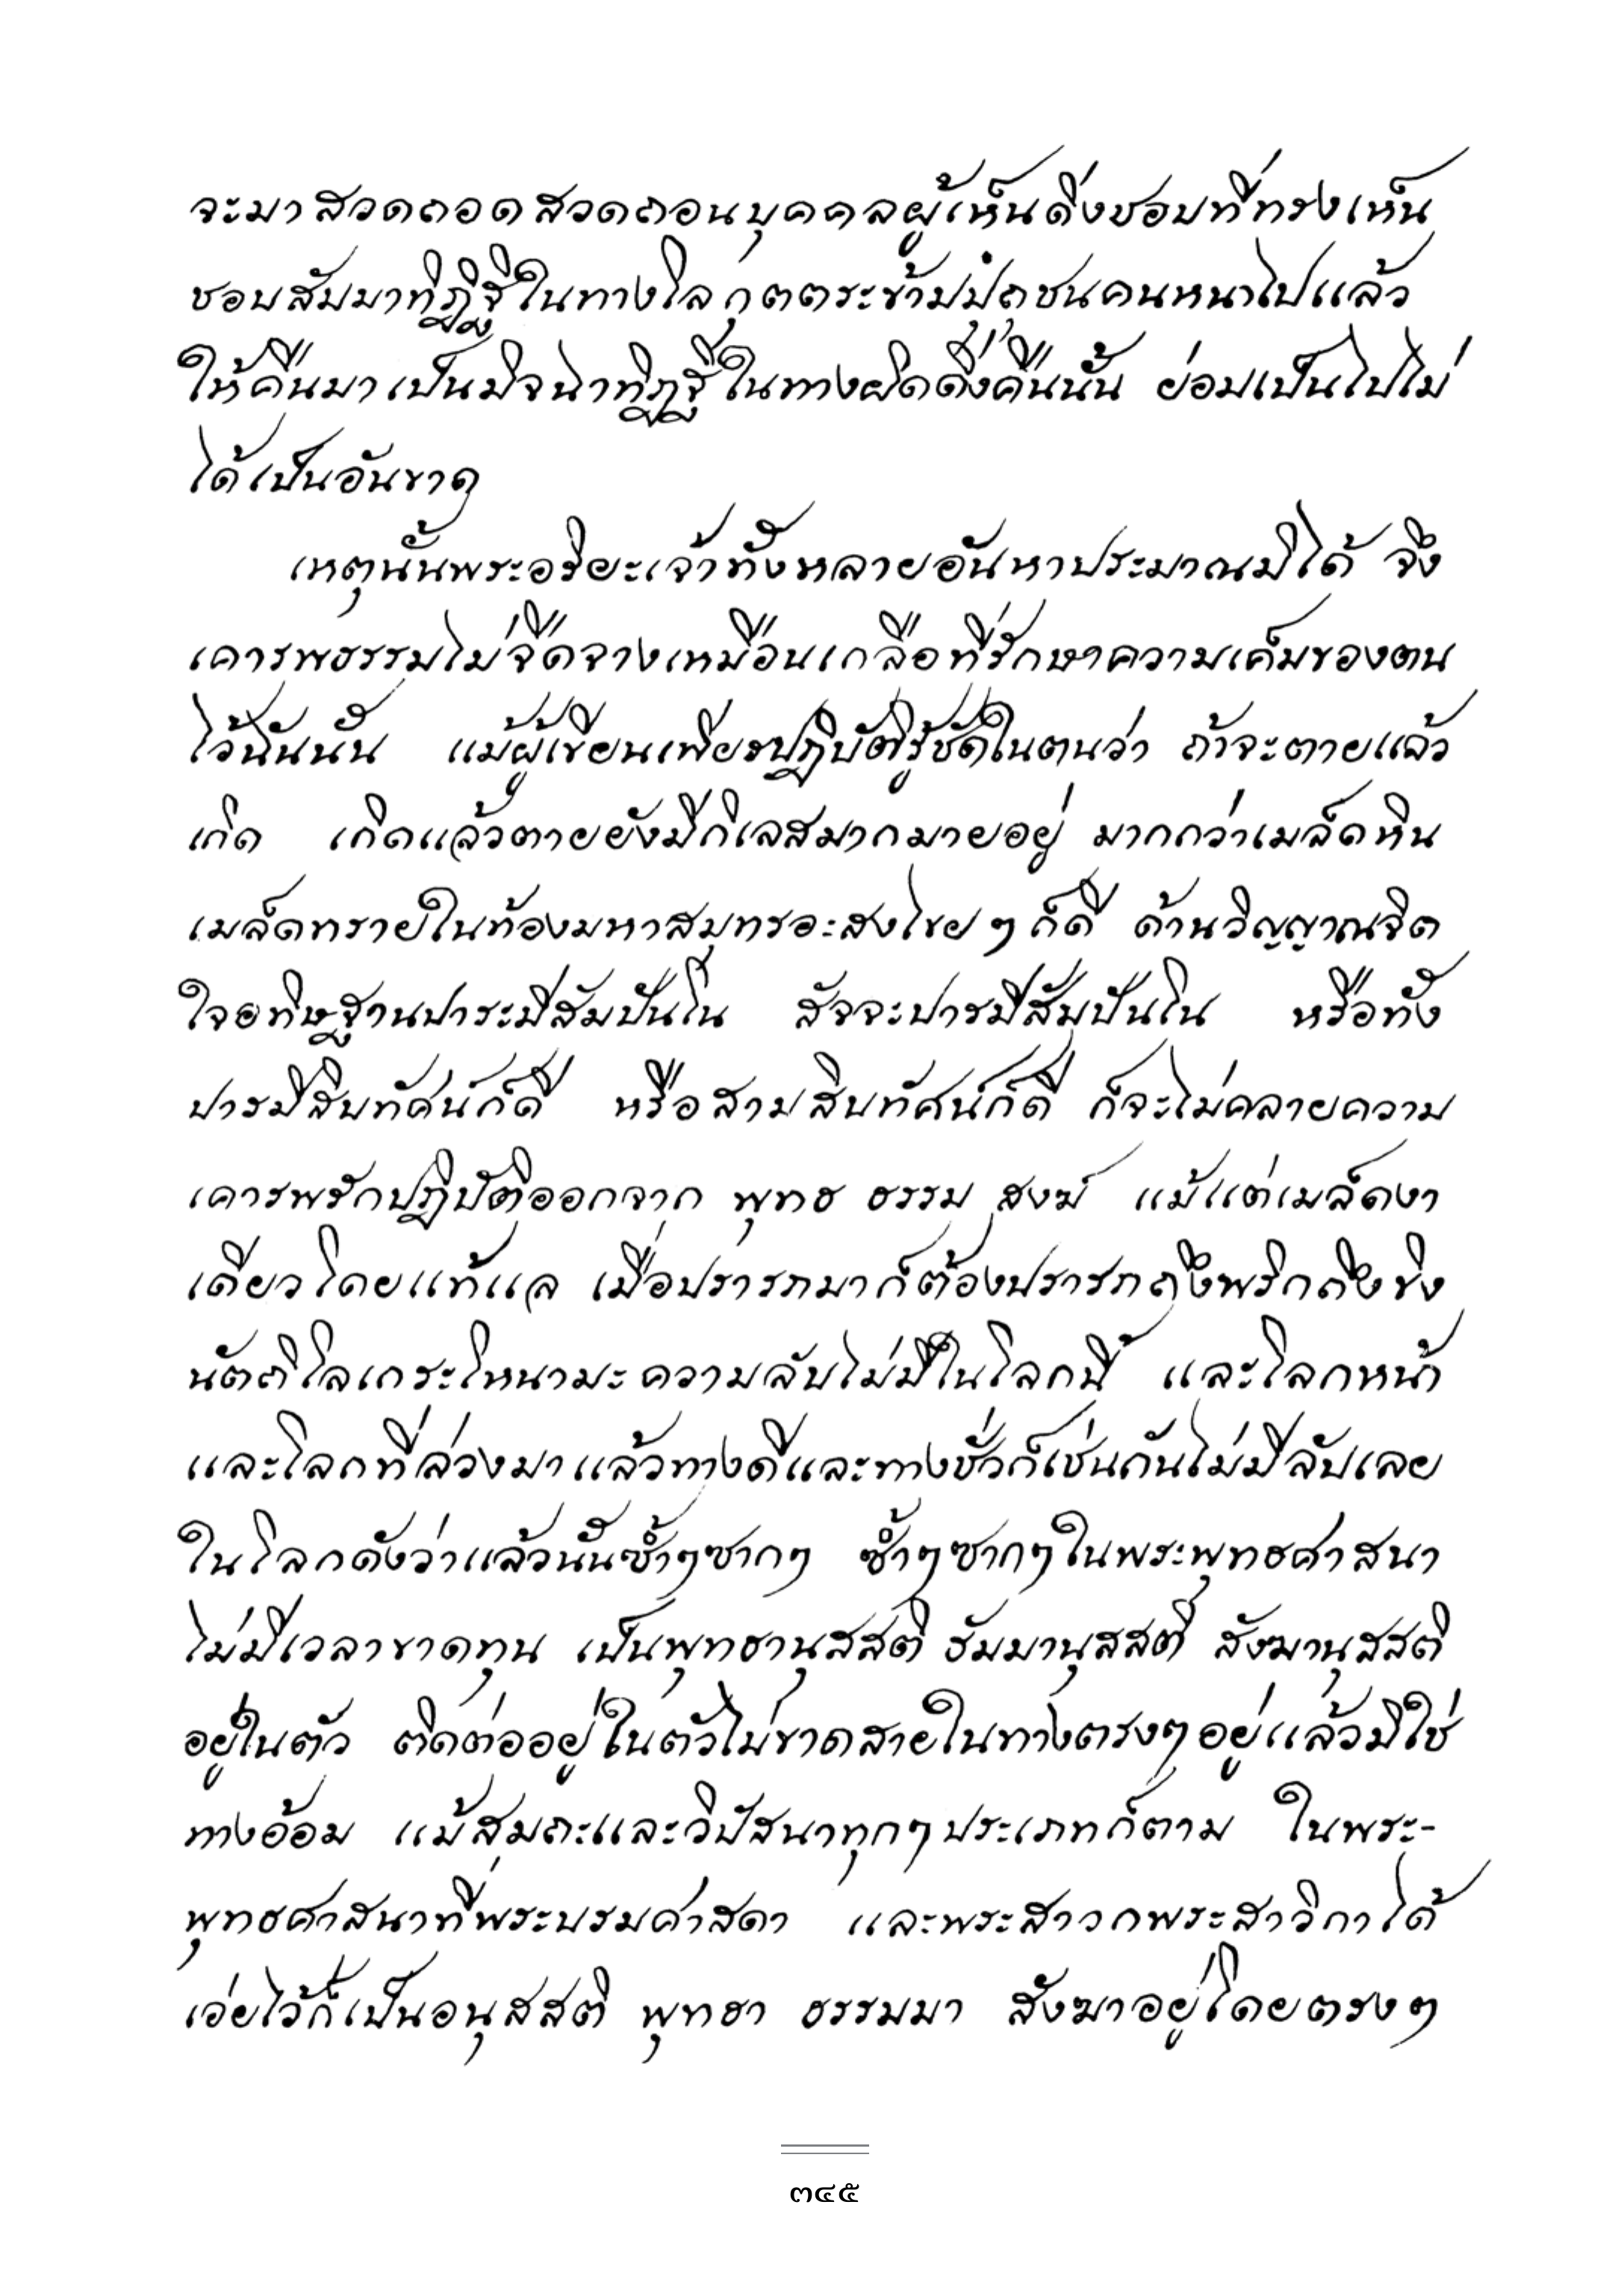 จะมาสวดถอดสวดถอนบุคคลผู้เห็นดิ่งชอบที่ทรงเห็น
ชอบสัมมาทิฏฐิในทางโลกุตตระข้ามปุถุชนคนหนาไปแล้ว
ให้คืนมาเป็นมิจฉาทิฏฐิในทางผิดดิ่งคืนนั้น ย่อมเป็นไปไม่
ได้เป็นอันขาด
เหตุนั้นพระอริยะเจ้าทั้งหลายอันหาประมาณมิได้ จึง
เคารพธรรมไม่จืดจางเหมือนเกลือที่รักษาความเค็มของตน
ไว้ฉันนั้น แม้ผู้เขียนเพียรปฏิบัติรู้ชัดในตนว่า ถ้าจะตายแล้ว
เกิด เกิดแล้วตายยังมีกิเลสมากมายอยู่ มากกว่าเมล็ดหิน
เมล็ดทรายในท้องมหาสมุทรอะสงไขยๆ ก็ดี ด้านวิญญาณจิต
ใจอทิษฐานปาระมีสัมปันโน สัจจะปารมีสัมปันโน หรือทั้ง
ปารมีสิบทัศน์ก็ดี หรือสามสิบทัศน์ก็ดี ก็จะไม่คลายความ
เคารพรักปฏิบัติออกจาก พุทธ ธรรม สงฆ์ แม้แต่เมล็ดงา
เดียวโดยแท้แล เมื่อปรารภมาก็ต้องปรารภถึงพริกถึงขิง
นัตถิโลเกระโหนามะความลับไม่มีในโลกนี้ และโลกหน้า
และโลกที่ล่วงมาแล้วทางดีและทางชั่วก็เช่นกันไม่มีลับเลย
ในโลกดังว่าแล้วนั้นซ้ำๆซากๆ ซ้ำๆซากๆในพระพุทธศาสนา
ไม่มีเวลาขาดทุน เป็นพุทธานุสสติ ธัมมานุสสติ สังฆานุสสติ
อยู่ในตัว ติดต่ออยู่ในตัวไม่ขาดสายในทางตรงๆอยู่แล้วมิใช่
ทางอ้อม แม้สมถะและวิปัสนาทุกๆประเภทก็ตาม ในพระ-
พุทธศาสนาที่พระบรมศาสดา และพระสาวกพระสาวิกาได้
เอ่ยไว้ก็เป็นอนุสสติ พุทธา ธรรมมา สังฆาอยู่โดยตรงๆ
๓๔๕